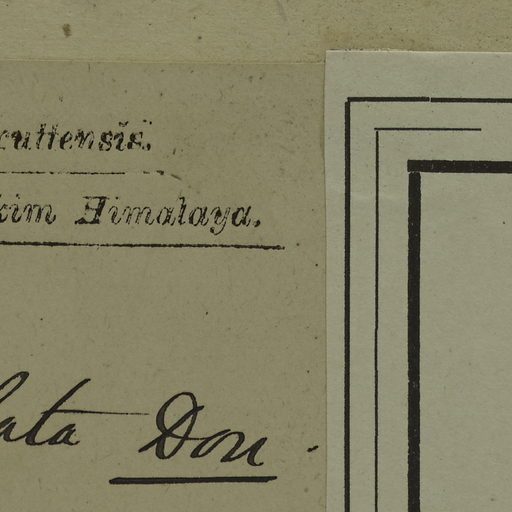 cuttensis.
kim Himalaya.
lata Don.